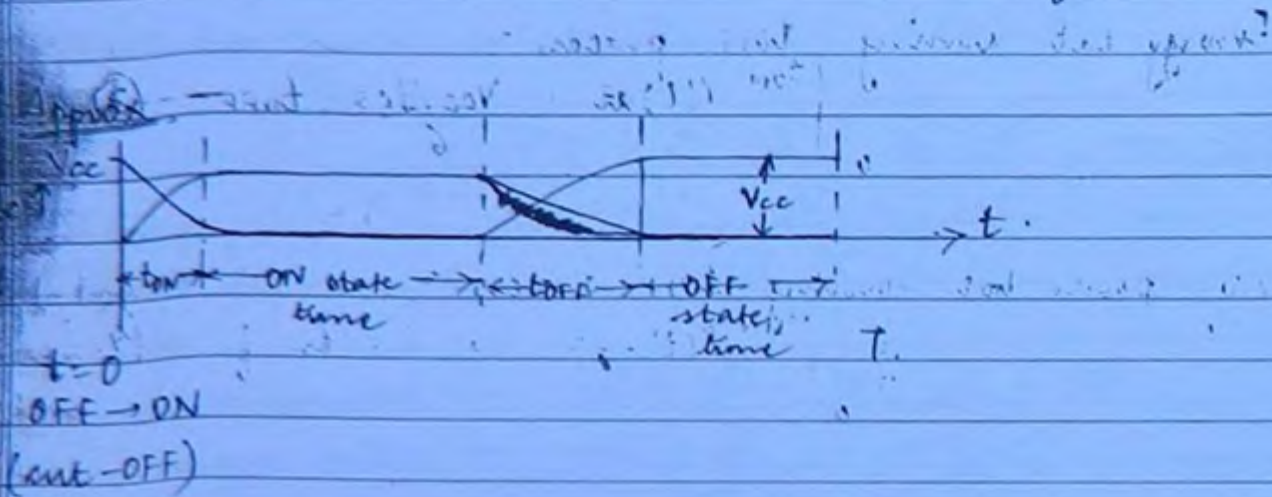 Approx
Vcc
Vcc
t.
tON ON state tOFF OFF
time state
time T.
t=0
OFF → ON
(cut-OFF)